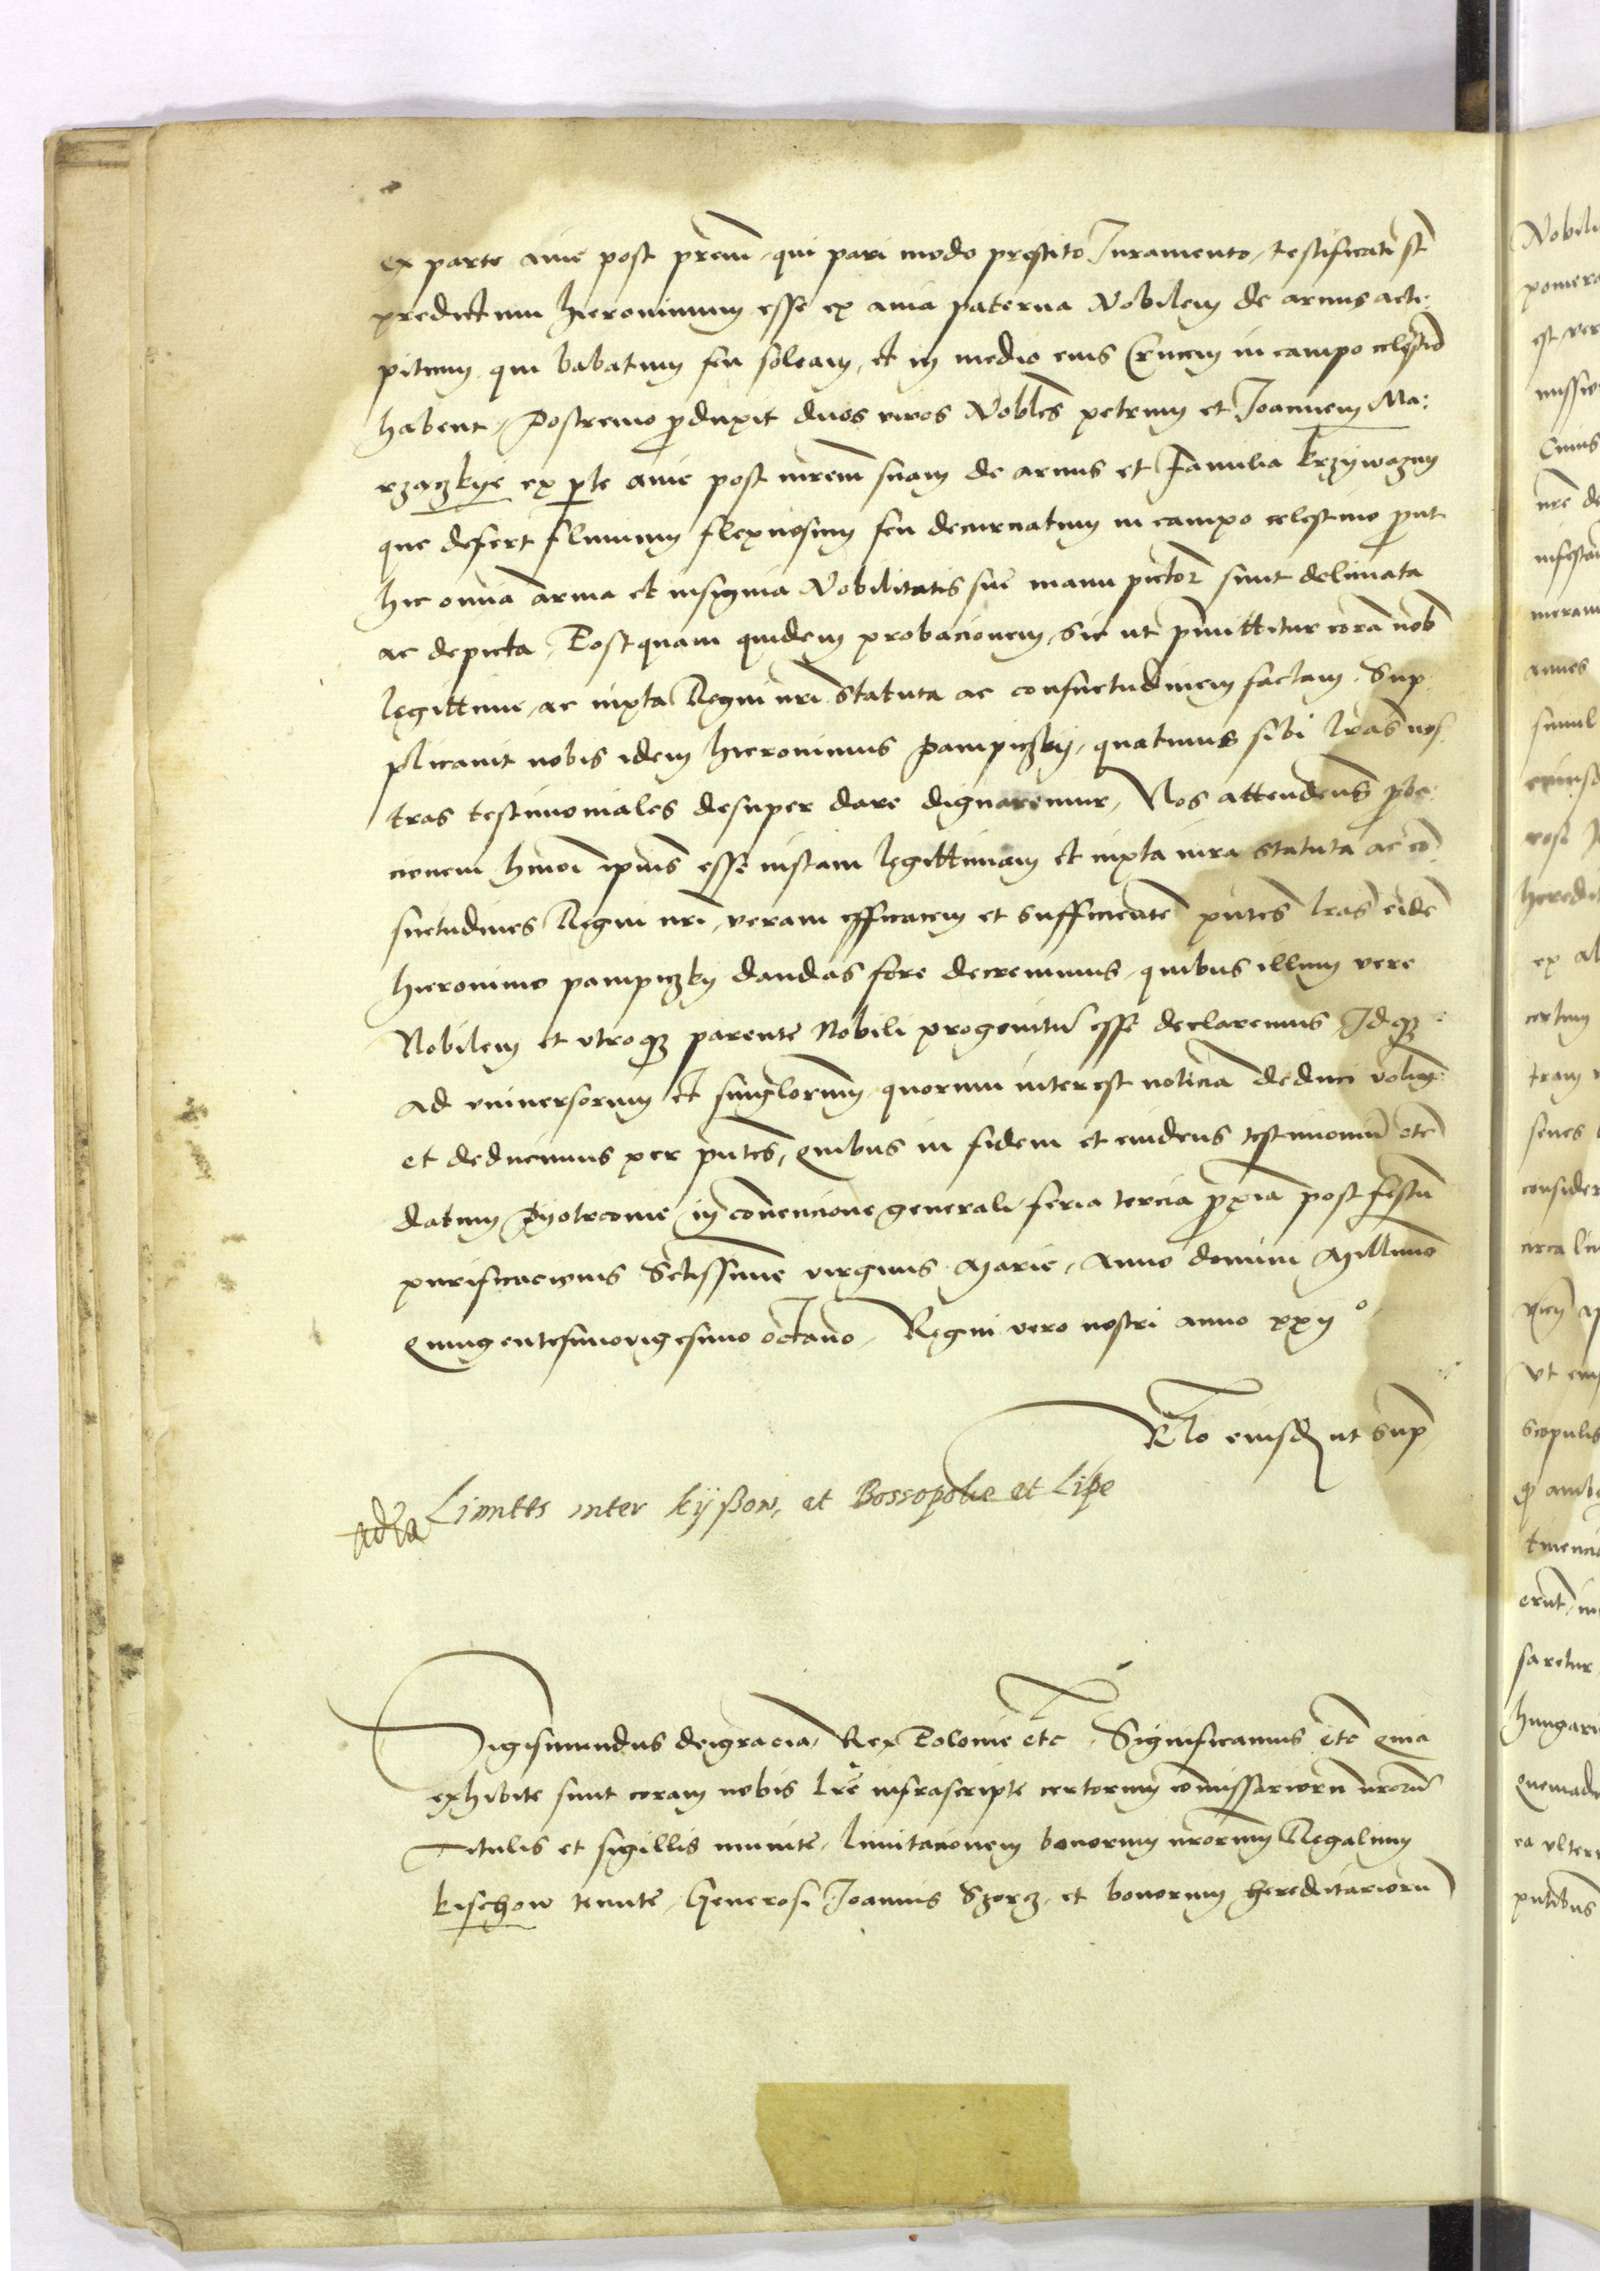 ex parte auie post prem̄, qui pari modo prestito Juramento, testificati st̄
predictum hieronimum esse ex auia paterna Nobilem de armis acce
pitrum, qui babatum seu soleam, et in medio eius Crucem in campo celestio
habent, Postremo produxit duos viros Nobles petrum et Joannem Ma:
rzączkye ex pte auie post mrem̄ suam de armis et Familia krzywazny
que defert fluuium flexuosum seu decurnatum in campo celestino prout
hic omia arma et insignia Nobilitatis sue manu pictor sunt delimata
ac depicta, Postquam quidem probacionem, sic ut pmittitur corā nob
legittime, ac iuxta Regni nri Statuta ac consuetudinem factam, Sup
plicauit nobis idem hieronimus pampiczky, quatenus sibi lras nos
tras testimoniales desuper dare dignaremur, Nos attenden̄s proba
cionem hmoi ipius esse iustam legittimam et iuxta iura statuta ac cō
suetudines Regni nri, veram efficacem et sufficientē pntes lras eidē
hieronimo pampiczky dandas fore decreuimus, quibus illum vere
Nobilem et vtroqz parente Nobili progenitū esse declaremus Idqz
ad vniuersorum et singlorum quorum interest noticiā deduci volum9
et deducimus per pntes, Quibus in fidem et euidens testimoniū etc̄
datum Pyotrcouie in conuencione generali feria tercia proxia post festū
purificacionis Sctissime virginis Marie, Anno domini Millimo
Quingentesimouigesimo octauo, Regni vero nostri anno xxij°
Rlo eiusdz ut sup
Limites inter kÿßow, et Bossopolie et Lipe
Sigismundus deigracia, Rex Polonie etc, Significamus etc Quia
exhibite sunt coram nobis lre infrascripte certorum comissariorū nrorū
Titulis et sigillis munite, limitacionem bonorum nrorum Regalium
kischow tenute, Generosi Joannis Szorcz, et bonorum hereditariorū